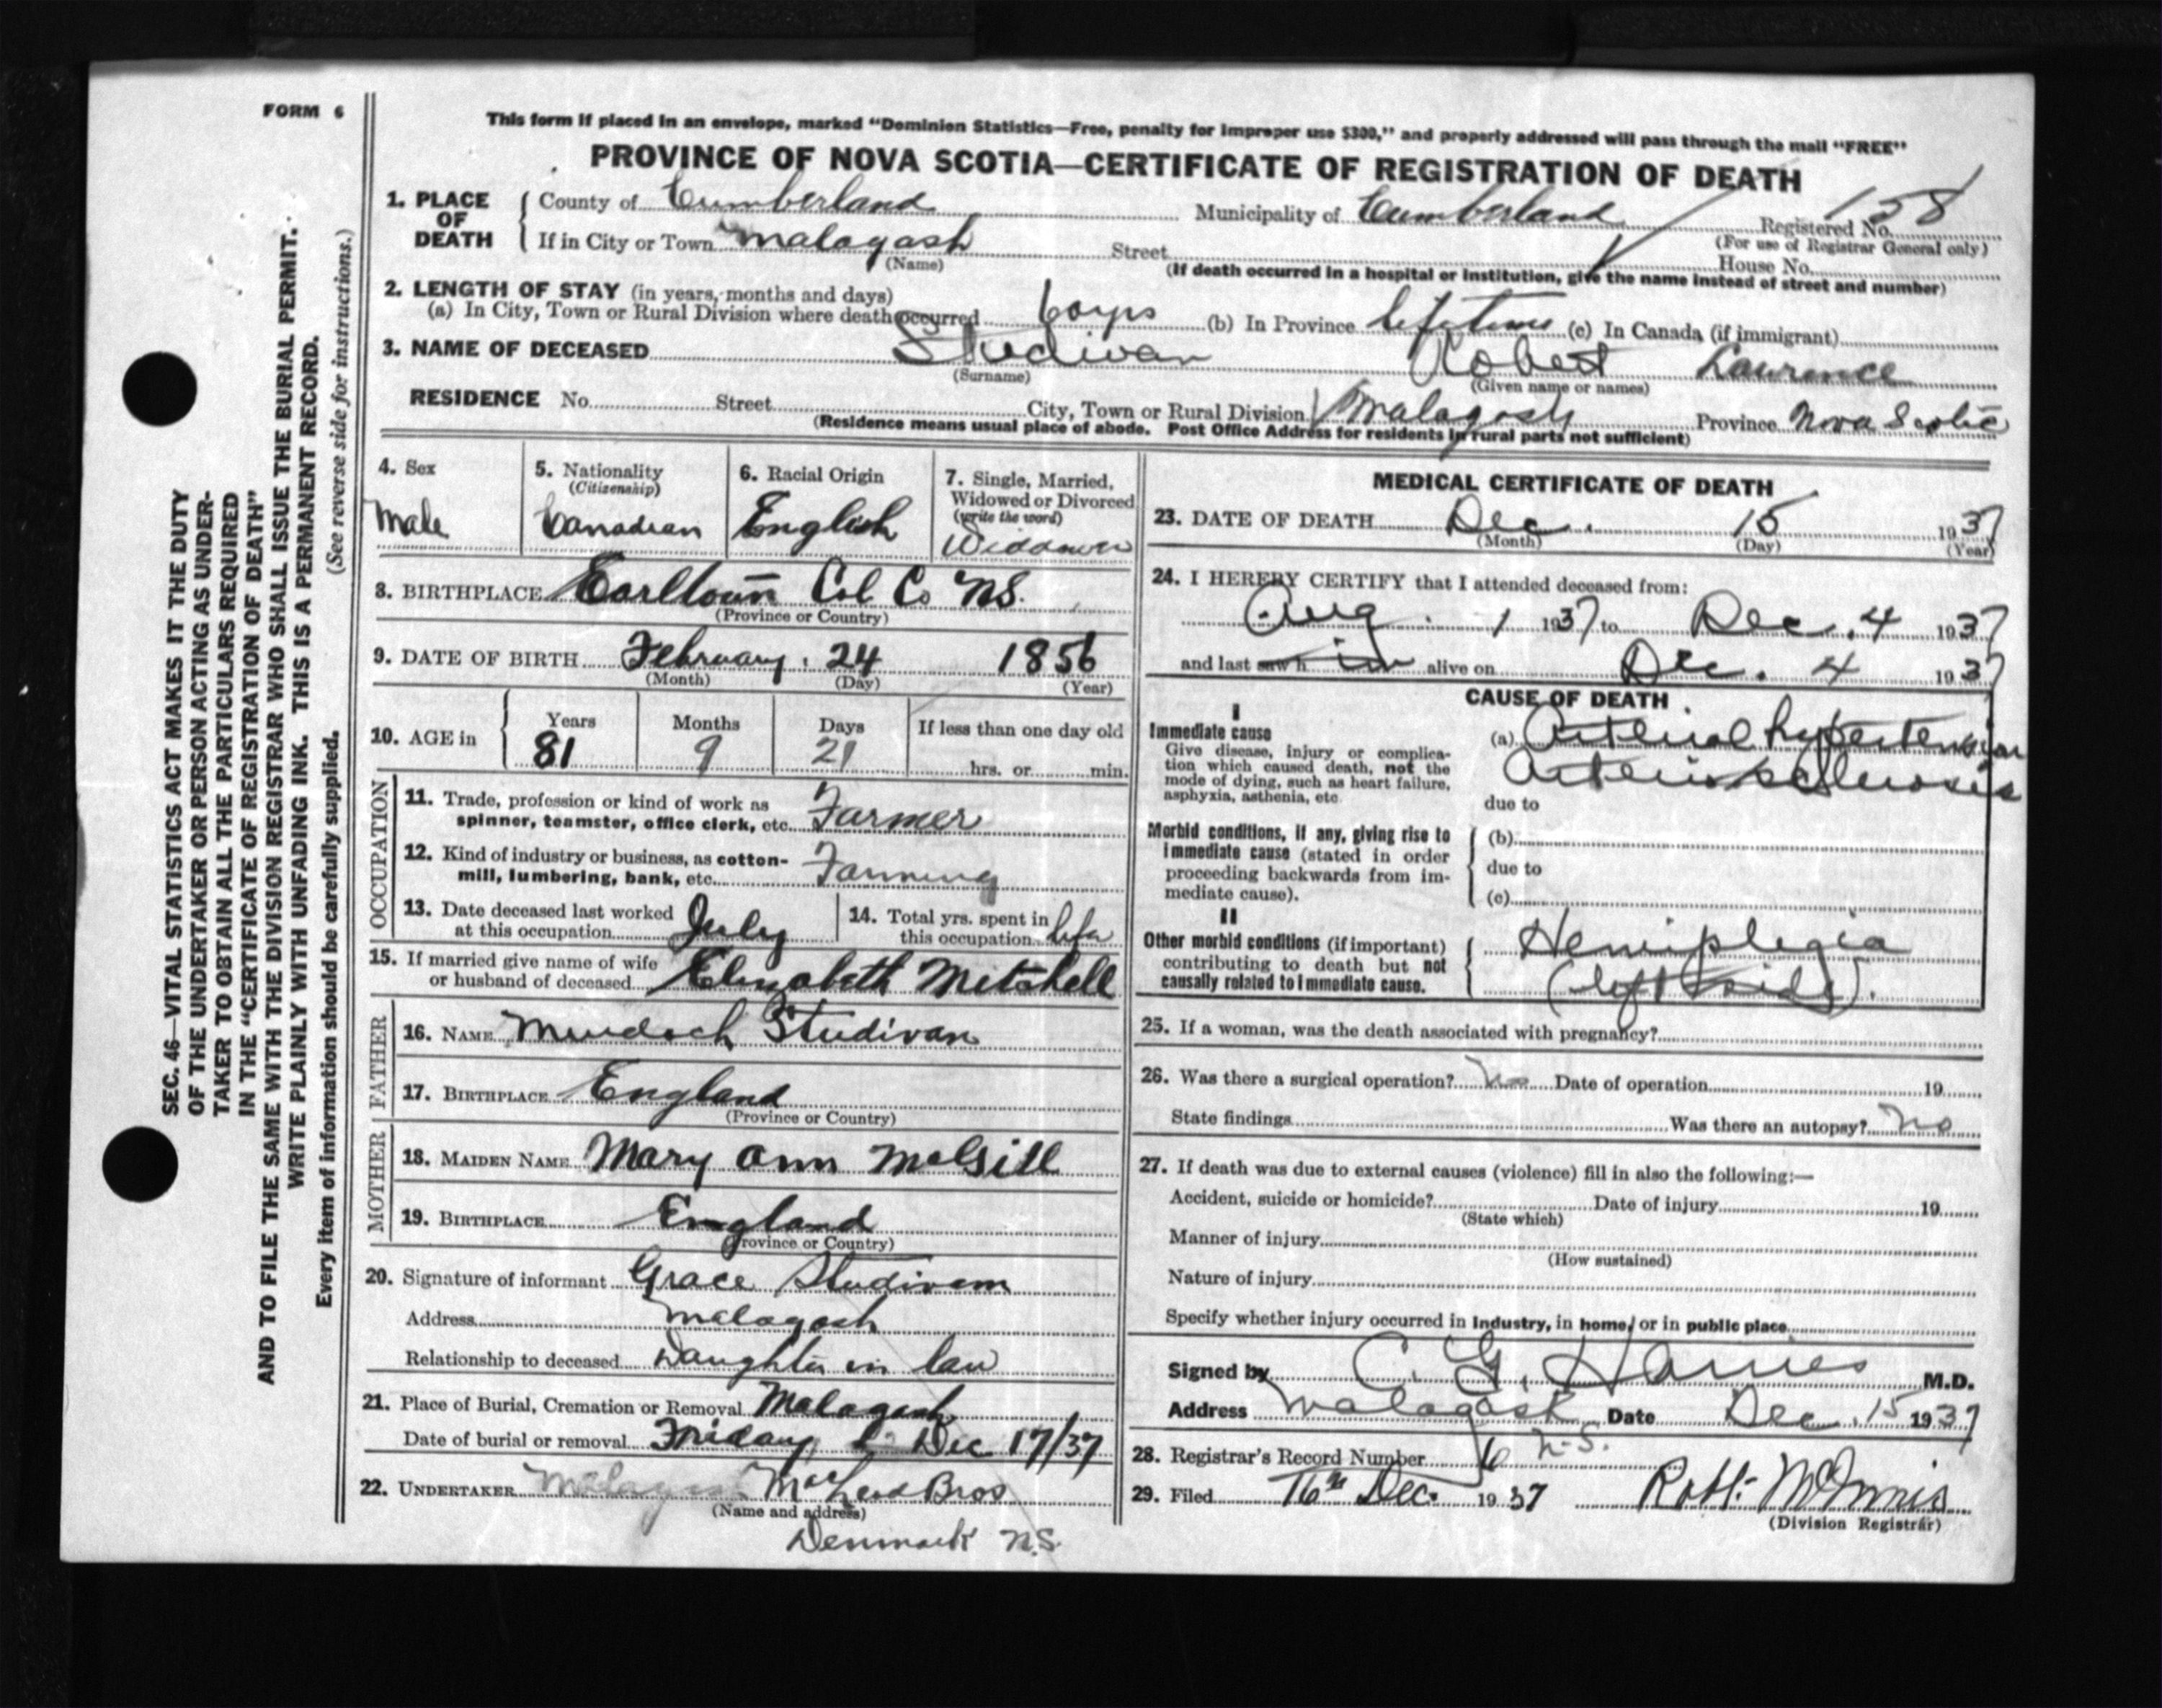 FORM 6
This form if placed in an envelope, marked "Dominion Statistics—Free, penalty for improper use $300," and properly addressed will pass through the mail "FREE"
PROVINCE OF NOVA SCOTIA—CERTIFICATE OF REGISTRATION OF DEATH
1. PLACE OF DEATH County of Cumberland Municipality of Cumberland Registered No. 158
(For use of Registrar General only)
If in City or Town Malagash Street House No.
(Name) (If death occurred in a hospital or institution, give the name instead of street and number)
2. LENGTH OF STAY (in years, months and days)
(a) In City, Town or Rural Division where death occurred 60 yrs (b) In Province lifetime (c) In Canada (if immigrant)
3. NAME OF DECEASED Studivan Robert Lawrence
(Surname) (Given name or names)
RESIDENCE No. Street City, Town or Rural Division Malagash Province Nova Scotia
(Residence means usual place of abode. Post Office Address for residents in rural parts not sufficient)
4. Sex
Male
5. Nationality
(Citizenship)
Canadian
6. Racial Origin
English
7. Single, Married,
Widowed or Divorced
(write the word)
Widower
8. BIRTHPLACE Earltown Col Co NS.
(Province or Country)
9. DATE OF BIRTH February 24 1856
(Month) (Day) (Year)
10. AGE in Years Months Days If less than one day old
81 9 21 hrs. or min.
OCCUPATION
11. Trade, profession or kind of work as
spinner, teamster, office clerk, etc. Farmer
12. Kind of industry or business, as cotton-
mill, lumbering, bank, etc. Farming
13. Date deceased last worked
at this occupation July
14. Total yrs. spent in
this occupation life
15. If married give name of wife
or husband of deceased Elizabeth Mitchell
FATHER
16. NAME Murdoch Studivan
17. BIRTHPLACE England
(Province or Country)
MOTHER
18. MAIDEN NAME Mary Ann McGill
19. BIRTHPLACE England
(Province or Country)
20. Signature of informant Grace Studivan
Address Malagash
Relationship to deceased Daughter in law
21. Place of Burial, Cremation or Removal Malagash
Date of burial or removal Friday Dec 17/37
22. UNDERTAKER Malagash MacLeod Bros
(Name and address)
Denmark N.S.
MEDICAL CERTIFICATE OF DEATH
23. DATE OF DEATH Dec. 15 1937
(Month) (Day) (Year)
24. I HEREBY CERTIFY that I attended deceased from:
Aug. 1 1937 to Dec. 4 1937
and last saw h im alive on Dec. 4 1937
CAUSE OF DEATH
I
Immediate cause
Give disease, injury or complica-
tion which caused death, not the
mode of dying, such as heart failure,
asphyxia, asthenia, etc.
(a) Arterial hypertension
Arteriosclerosis
due to
Morbid conditions, if any, giving rise to
immediate cause (stated in order
proceeding backwards from im-
mediate cause).
(b)
due to
(c)
II
Other morbid conditions (if important)
contributing to death but not
causally related to immediate cause.
Hemiplegia
(left side).
25. If a woman, was the death associated with pregnancy?
26. Was there a surgical operation? No Date of operation 19
State findings Was there an autopsy? No
27. If death was due to external causes (violence) fill in also the following:—
Accident, suicide or homicide? Date of injury 19
(State which)
Manner of injury
(How sustained)
Nature of injury
Specify whether injury occurred in industry, in home, or in public place
Signed by C. G. Harries M.D.
Address Malagash N.S. Date Dec. 15 1937
28. Registrar's Record Number 6
29. Filed 16th Dec. 1937 Robt. McInnis
(Division Registrar)
SEC. 46—VITAL STATISTICS ACT MAKES IT THE DUTY
OF THE UNDERTAKER OR PERSON ACTING AS UNDER-
TAKER TO OBTAIN ALL THE PARTICULARS REQUIRED
IN THE "CERTIFICATE OF REGISTRATION OF DEATH"
AND TO FILE THE SAME WITH THE DIVISION REGISTRAR WHO SHALL ISSUE THE BURIAL PERMIT.
WRITE PLAINLY WITH UNFADING INK. THIS IS A PERMANENT RECORD.
Every item of information should be carefully supplied. (See reverse side for instructions.)